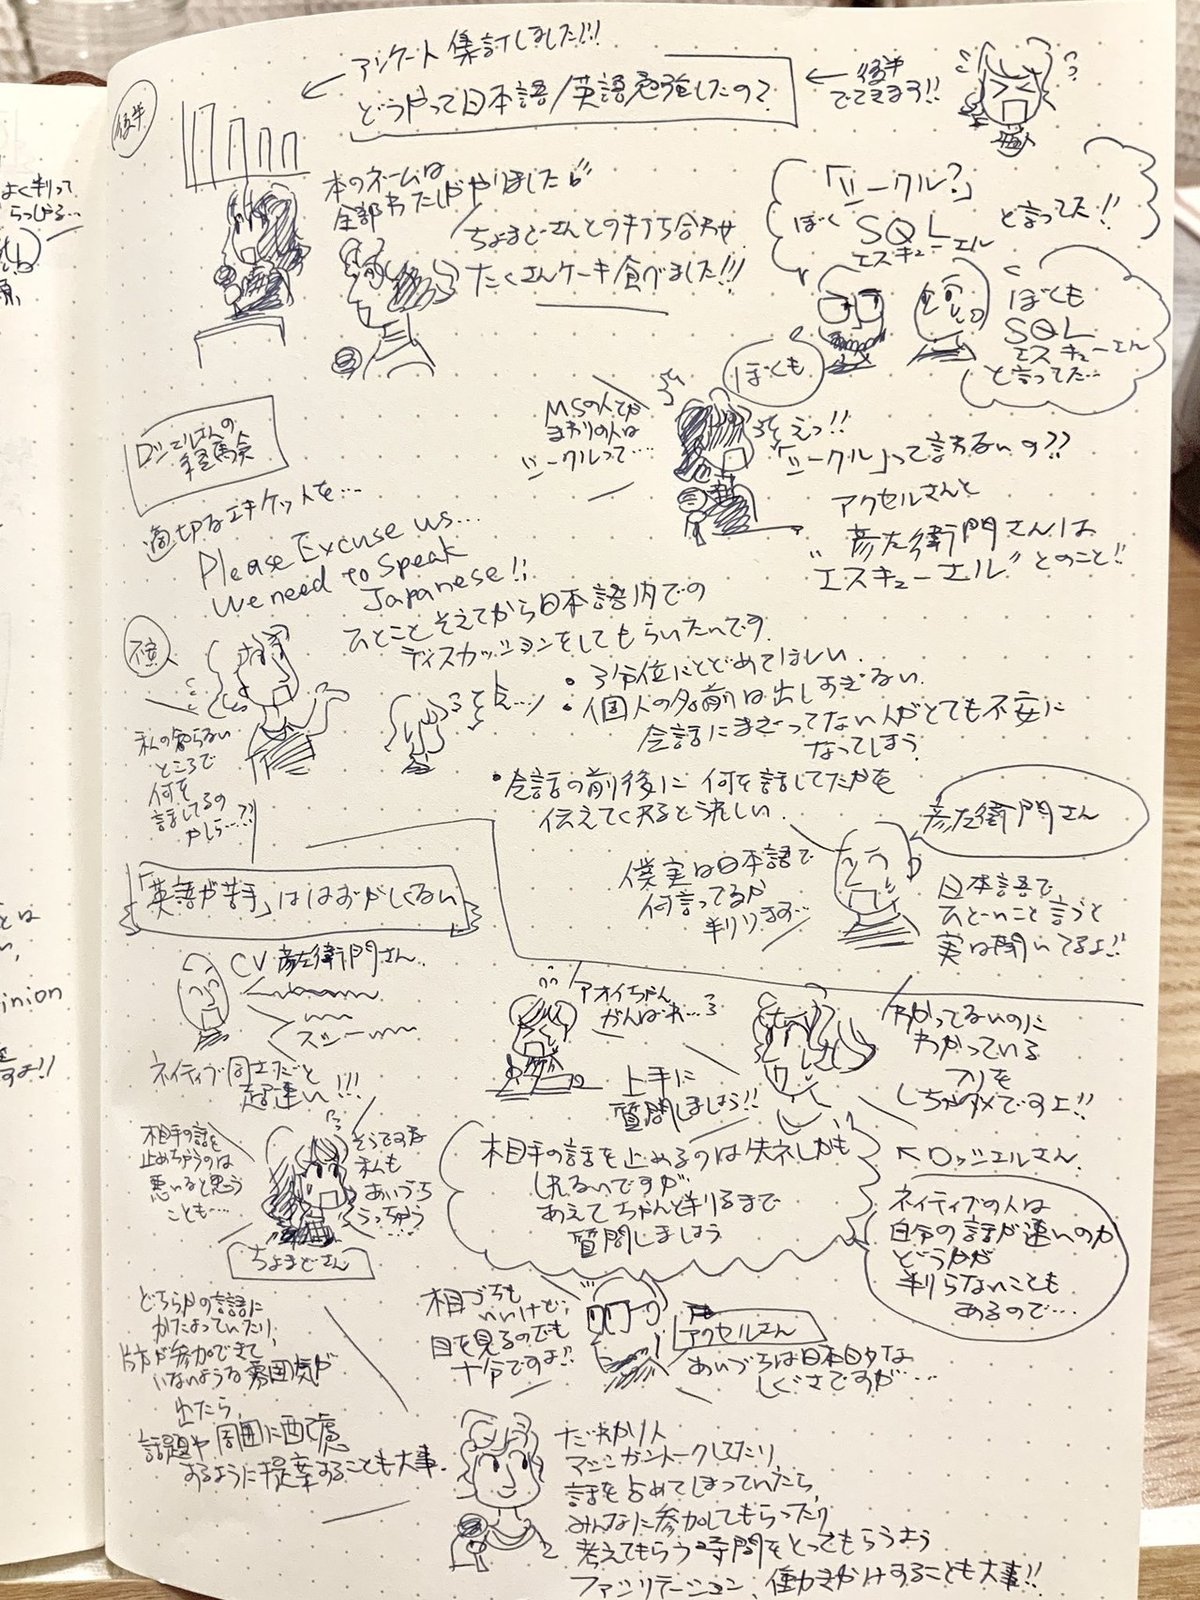 後半
アンケート集計しました!!!
どうやって日本語/英語勉強したの?
後半
でてきます!!
本のネームは
全部わたしがやりました
ちょまどさんとの打ち合わせ
たくさんケーキ食べました!!!
「シークル?」
ぼく SQL と言ってた!!
エスキューエル
ぼくも
SQL
エスキューエル
と言ってた…
ぼくも
MSの人でか
まわりの人は
シークルって…
えっ!!
「シークル」って言わないの??
アクセルさんと
彦左衛門さんは
"エスキューエル"とのこと!!
ロッシェルさんの
経験
適切なエチケットを…
Please Excuse us...
We need to Speak
Japanese!!
ひとことそえてから日本語内での
ディスカッションをしてもらいたいです
・3分位にとどめてほしい
・個人の名前は出しすぎない
会話にまざってない人がとても不安に
なってしまう
・会話の前後に何を話してたかを
伝えてくれると涼しい
不安
私の知らない
ところで
何を
話してるの
かしら…?!
そんな…
彦左衛門さん
僕実は日本語で
何言ってるか
判ります…
日本語で
ひどいこと言うと
実は聞いてるよ!!
「英語が苦手」ははずかしくない
CV 彦左衛門さん
ネイティブ同士だと
超速い!!!
アオイちゃん
がんばれ…
上手に
質問しましょう!!
わかってないのに
わかっている
フリを
しちゃダメですよ!!
ロッシェルさん
相手の話を
止めちゃうのは
悪いなと思う
ことも…
そうですね
私も
あいづち
うっちゃう
ちょまどさん
相手の話を止めるのは失礼かも
しれないですが
あえてちゃんと判るまで
質問しましょう
ネイティブの人は
自分の話が速いのか
どうかが
判らないことも
あるので…
相づちも
いいけど、
目を見るのでも
十分ですよ!!
アクセルさん
あいづちは日本的な
しぐさですが…
どちらかの言語に
かたよっていたり、
片方が参加できて
いないような雰囲気が
出たら、
話題や周囲に配慮
するように提案することも大事
だれか1人
マシンガントークしてたり、
話を占めてしまっていたら、
みんなに参加してもらったり
考えてもらう時間をとってもらうよう
ファシリテーション、働きかけすることも大事!!
よく判って
らっしゃる…
inion
すよ!!